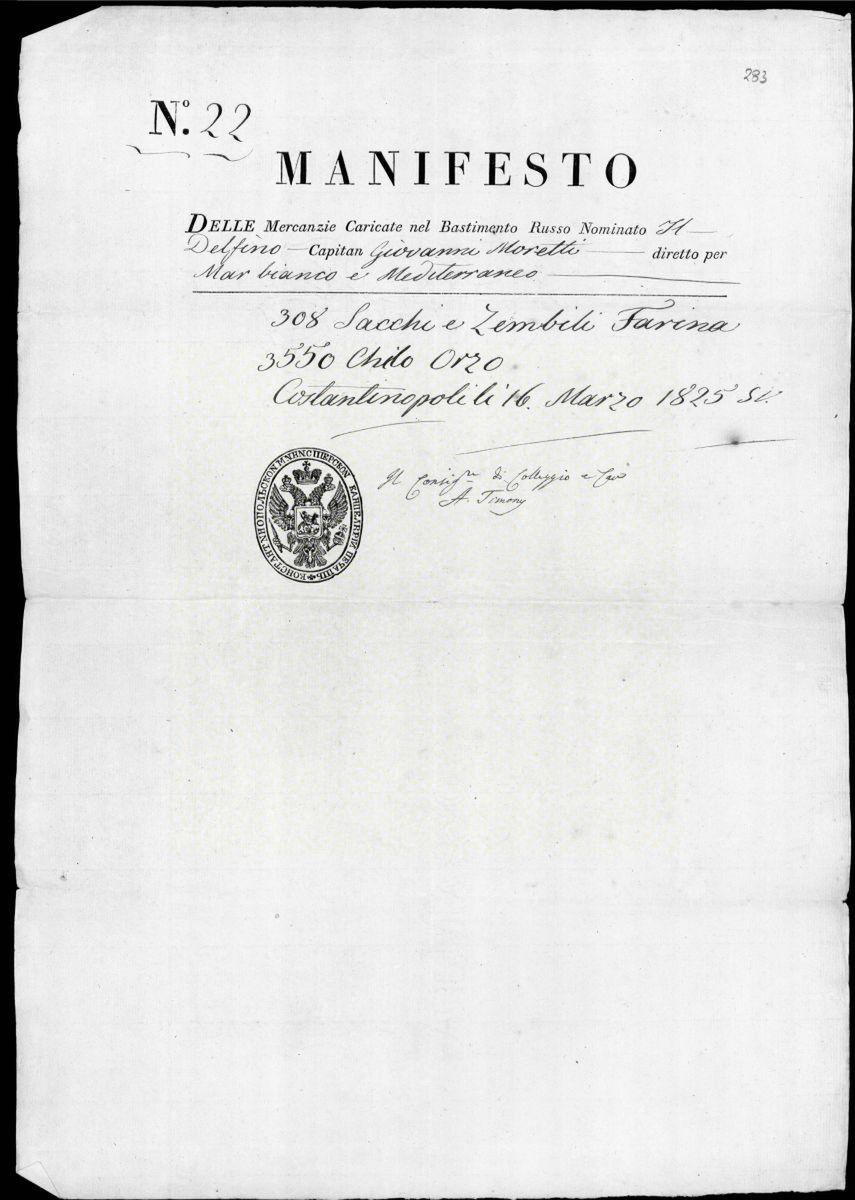 283
Nº. 22
MANIFESTO
DELLE Mercanzie Caricate nel Bastimento Russo Nominato Il
Delfino — Capitan Giovanni Moretti — diretto per
Mar bianco e Mediterraneo —
308 Sacchi e Zembili Farina
3550 Chilo Orzo
Costantinopoli li 16. Marzo 1825 SV.
Il Consigre di Colleggio e Cav
A. Timony
КОНСТАНТИНОПОЛЬСКОЙ МИНИСТЕРСКОЙ КАНЦЕЛЯРІИ ПЕЧАТЬ